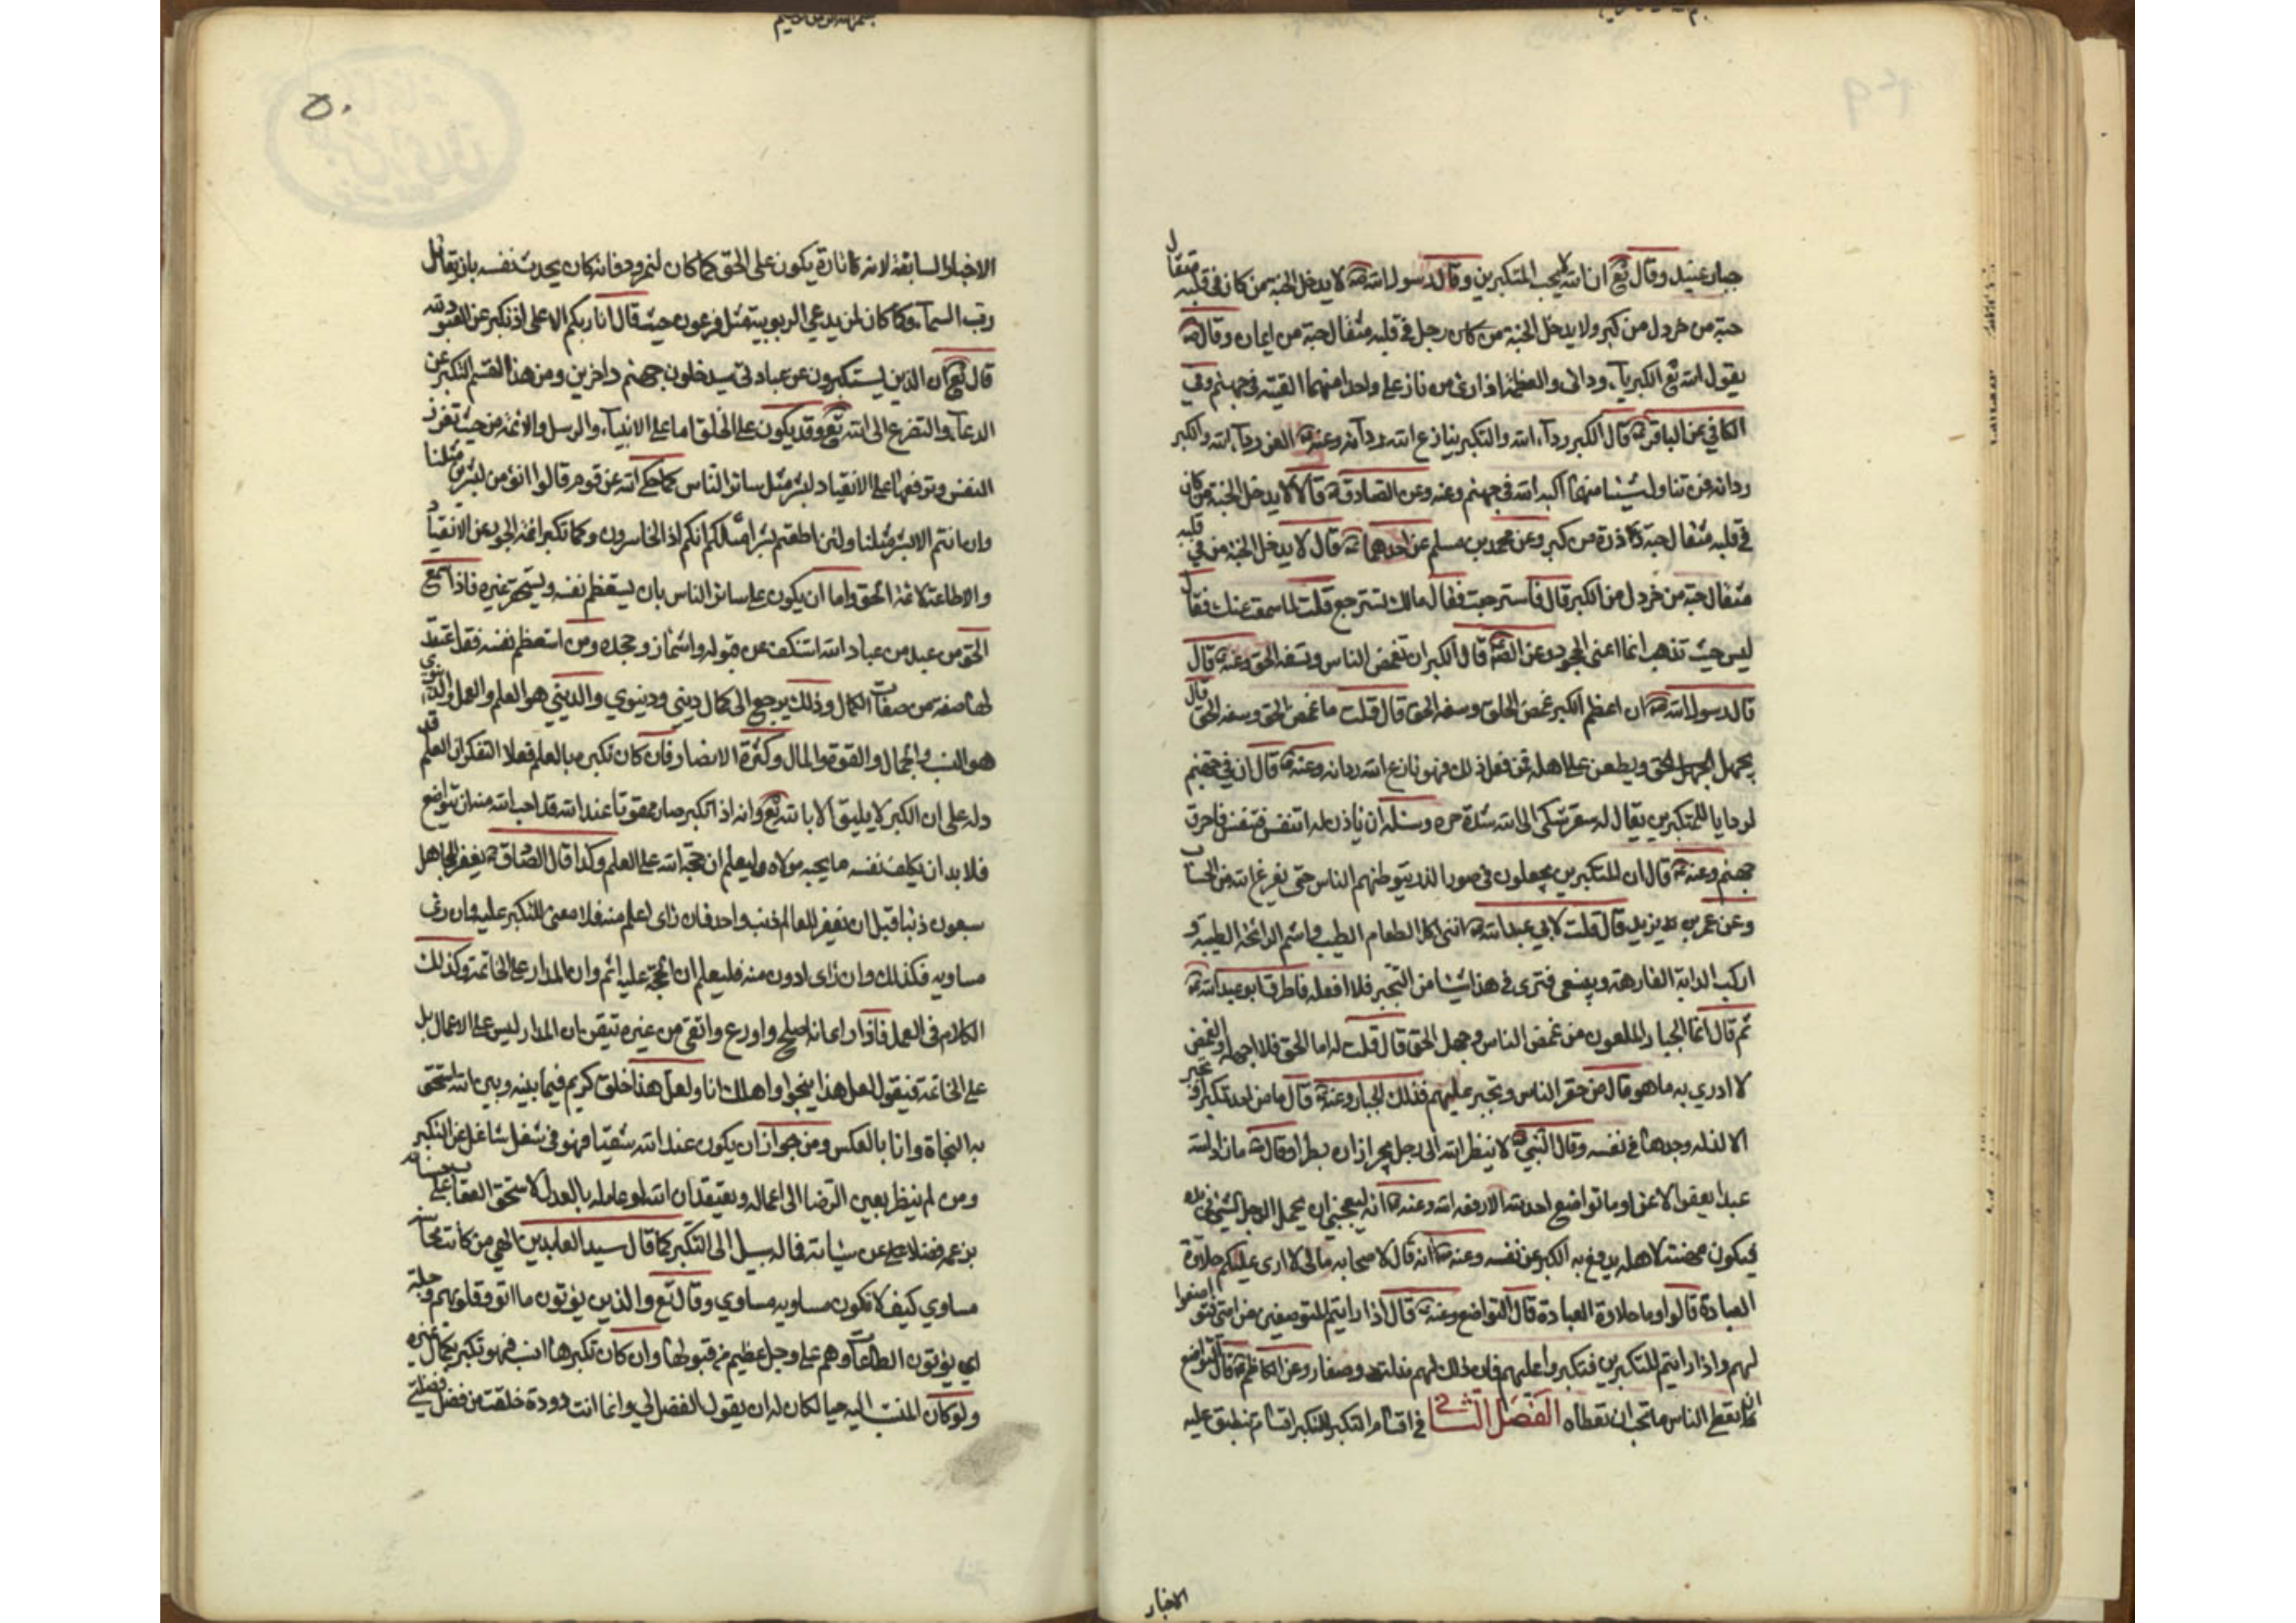 جبار عنيد وقال تع ان الله لا يحب المتكبرين وقال رسول الله ص لا يدخل الجنة من كان في قلبه مثقال
حبة من خردل من كبر ولا يدخل الجنة من كان رجل في قلبه مثقال حبة من ايمان وقال ص
يقول الله تع الكبرياء ردائي والعظمة ازاري من نازعني واحدا منهما القيته في جهنم وفي
الكافي عن الباقر ع قال الكبر رداء الله والمتكبر ينازع الله رداءه وعنه ع العز رداء الله والكبر
ردائه فمن تناول شيئا منهما اكبه الله في جهنم وعنه وعن الصادق ع قالا لا يدخل الجنة من كان
في قلبه مثقال حبة ذرة من كبر وعن محمد بن مسلم عن احدهما ع قال لا يدخل الجنة من في قلبه
مثقال حبة من خردل من الكبر قال فاسترجعت فقال مالك تسترجع قلت لما سمعت عنك فقال
ليس حيث تذهب انما اعني الجحود وعن الص ع قال الكبر ان تغمض الناس وتسفه الحق وعنه ع قال
قال رسول الله ص ان اعظم الكبر غمض الخلق وسفه الحق قال قلت ما غمض الخلق وسفه الحق قال
يجهل الحق ويطعن على اهله فمن فعل ذلك فهو نازع الله ردائه وعنه ع قال ان في جهنم
لواديا للمتكبرين يقال له سقر شكى الى الله شدة حره وسئله ان ياذن له ان يتنفس فتنفس فاحرق
جهنم وعنه ع قال ان المتكبرين يجعلون في صور الذر يتوطئهم الناس حتى يفرغ الله من الحساب
وعن عمر بن يزيد قال قلت لابي عبد الله ع انني اكل الطعام الطيب واشم الرائحة الطيبة و
اركب الدابة الفارهة ويتبعني فترى في هذا شيئا من التجبر فلا افعله فاطرق ابو عبد الله ع
ثم قال انما الجبار الملعون من غمض الناس وجهل الحق قال قلت له اما الحق فلا اجهله والغمض
لا ادري به ما هو قال من حقر الناس وتجبر عليهم فذلك الجبار وعنه ع قال ما من احد تكبر او تجبر
الا لذلة وجدها في نفسه وقال النبي ص لا ينظر الله الى رجل يجر ازاره بطرا وقال ص ما زاد الله
عبدا بعفو الا عزا وما تواضع احد لله الا رفعه الله وعنه ص انه ليعجبني ان يحمل الرجل الشيء في يده
فيكون مهنة لاهله يدفع به الكبر عن نفسه وعنه ص انه قال لاصحابه مالي لا ارى عليكم حلاوة
العبادة قالوا وما حلاوة العبادة قال التواضع وعنه ص قال اذا رايتم المتواضعين من امتي فتواضعوا
لهم واذا رايتم المتكبرين فتكبروا عليهم فان ذلك لهم مذلة وصغار وعن الكاظم ع قال التواضع
ان تعطي الناس ما تحب ان تعطاه الفصل الثاني في اقسام التكبر للتكبر اقسام تنطبق عليه
الاخبار
٥٠
الاخبار السابقة لانه تارة يكون على الحق كما كان لنمرود فانه كان يحدث نفسه بان يقاتل
رب السماء وكما كان لمن يدعي الربوبية مثل فرعون حيث قال انا ربكم الاعلى اذ تكبر عن العبودية لله
قال تع ان الذين يستكبرون عن عبادتي سيدخلون جهنم داخرين ومن هذا القسم التكبر عن
الدعاء والتضرع الى الله تع وقد يكون على الخلق اما على الانبياء والرسل والائمة من حيث تعزز
النفس وترفعها على الانقياد لبشر مثل سائر الناس كما حكى الله عن قوم قالوا انؤمن لبشرين مثلنا
وان انتم الا بشر مثلنا ولئن اطعتم بشرا مثلكم انكم اذا لخاسرون وكما تكبر ائمة الجور عن الانقياد
والاطاعة لائمة الحق واما ان يكون على سائر الناس بان يستعظم نفسه ويستحقر غيره فاذا سمع
الحق من عبد من عباد الله استنكف عن قبوله واشمأز وجحده ومن استعظم نفسه فقد اعتقد
لها صفة من صفات الكمال وذلك يرجع الى كمال ديني ودنيوي والديني هو العلم والعمل والدنيوي
هو النسب والجمال والقوة والمال وكثرة الانصار فان كان تكبره بالعلم فعلاجه التفكر ان العلم قد
دله على ان الكبر لا يليق الا بالله تع وانه اذا تكبر صار ممقوتا عند الله قد احب الله منه ان يتواضع
فلا بد ان يكلف نفسه ما يحبه مولاه وليعلم ان حجة الله على العلم وكدا قال الصادق ع يغفر للجاهل
سبعون ذنبا قبل ان يغفر للعالم ذنب واحد فان راى اعلم منه فلا معنى للتكبر عليه وان راى
مساويه فكذلك وان راى ادون منه فليعلم ان الحجة عليه اتم وان المدار على الخاتمة وكذلك
الكلام في العمل فاذا راى انه اصلح واورع واتقى من غيره تيقن ان المدار ليس على الاعمال بل
على الخاتمة فيقول لعل هذا ينجوا واهلك انا ولعل هذا خلق كريم فيما بينه وبين الله استحق
به النجاة وانا بالعكس ومن جواز ان يكون عند الله شقيا فهو في شغل شاغل عن التكبر
ومن لم ينظر بعين الرضا الى اعماله ويعتقد ان الله لو عامله بالعدل لاستحق العقاب على
فضلا عن سيئاته فماله سبيل الى التكبر كما قال سيد العابدين الهي من كانت محاسنه
مساوي كيف لا تكون مساويه مساوي وقال تع والذين يؤتون ما اتوا وقلوبهم وجلة
اي يؤتون الطاعات وهم على وجل عظيم من قبولها وان كان تكبرها النسب فهو تكبر بكمال غيره
ولو كان المنتسب اليه حيا لكان له ان يقول الفضل لي وانما انت دودة خلقت من فضلتي